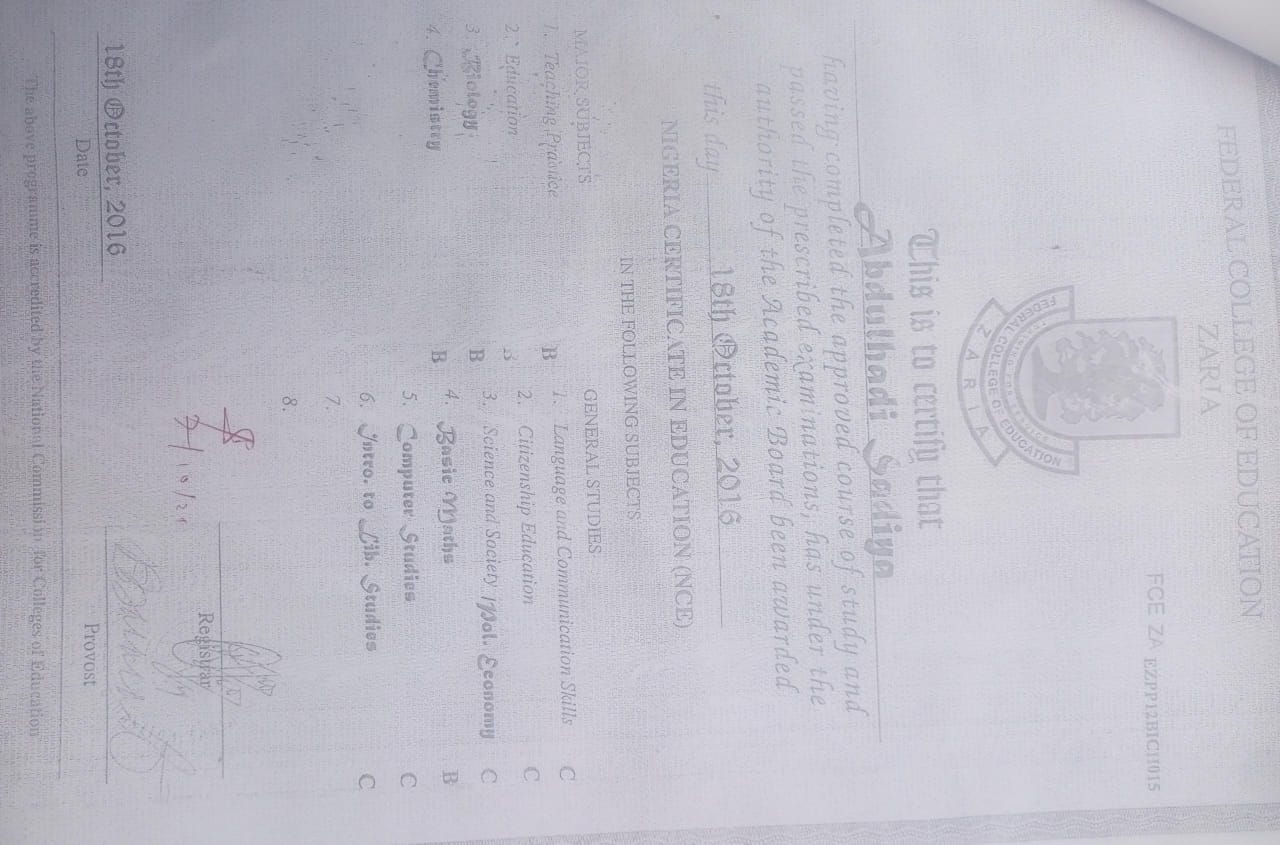 FEDERAL COLLEGE OF EDUCATION
ZARIA
FCE ZA EZPP12BICI1015
FEDERAL COLLEGE OF EDUCATION
ZARIA
This is to certify that
Abdulhadi Sadiya
having completed the approved course of study and
passed the prescribed examinations, has under the
authority of the Academic Board been awarded
this day 18th October, 2016
NIGERIA CERTIFICATE IN EDUCATION (NCE)
IN THE FOLLOWING SUBJECTS
MAJOR SUBJECTS
1. Teaching Practice B
2. Education B
3. Biology B
4. Chemistry B
GENERAL STUDIES
1. Language and Communication Skills C
2. Citizenship Education C
3. Science and Society / Pol. Economy C
4. Basic Maths B
5. Computer Studies C
6. Intro. to Lib. Studies C
7.
8.
Registrar
18th October, 2016
Date
Provost
The above programme is accredited by the National Commission for Colleges of Education